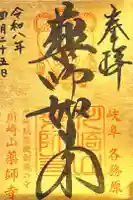 奉拝
岐阜 各務原
薬師如来
川崎山薬師寺
令和八年
四月二十五日